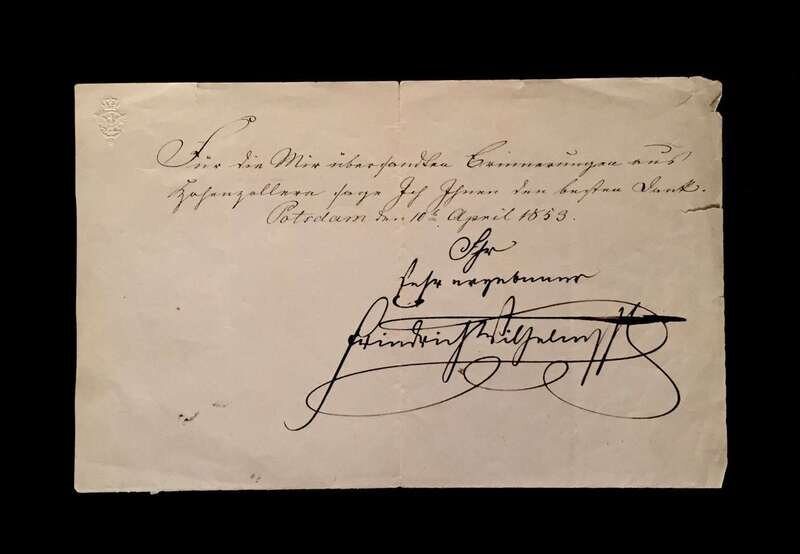 Für die Mir übersandten Erinnerungen aus
Hohenzollern sage Ich Ihnen den besten Dank.
Potsdam den 10ten April 1853.
Ihr
sehr ergebener
Friedrich Wilhelm